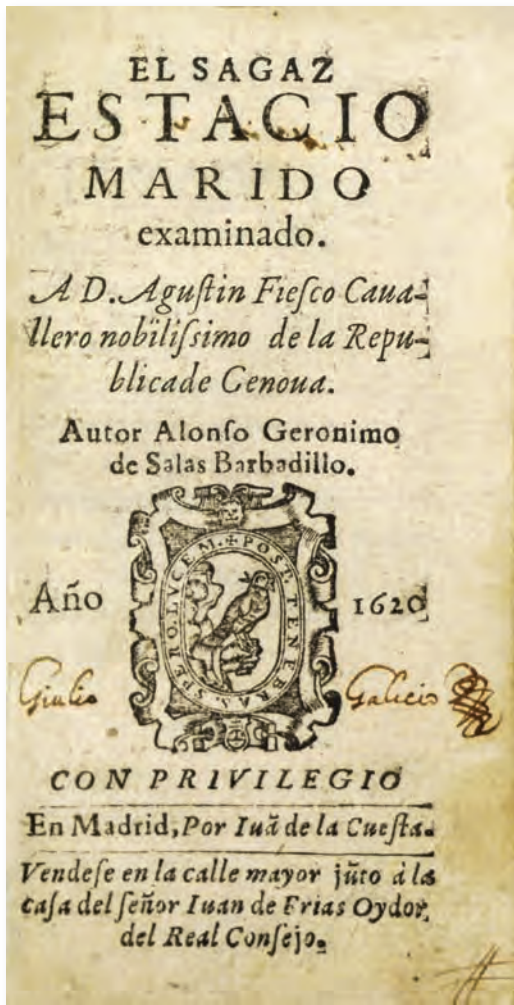 EL SAGAZ
ESTACIO
MARIDO
examinado.
A D. Aguſtin Fieſco Caua-
llero nobiliſsimo de la Repu-
blica de Genoua.
Autor Alonſo Geronimo
de Salas Barbadillo.
POST TENEBRAS SPERO LVCEM
Año 1620
Giulio Galicio
CON PRIVILEGIO
En Madrid, Por Iuã de la Cueſta.
Vendeſe en la calle mayor jũto á la
caſa del ſeñor Iuan de Frias Oydor,
del Real Conſejo.